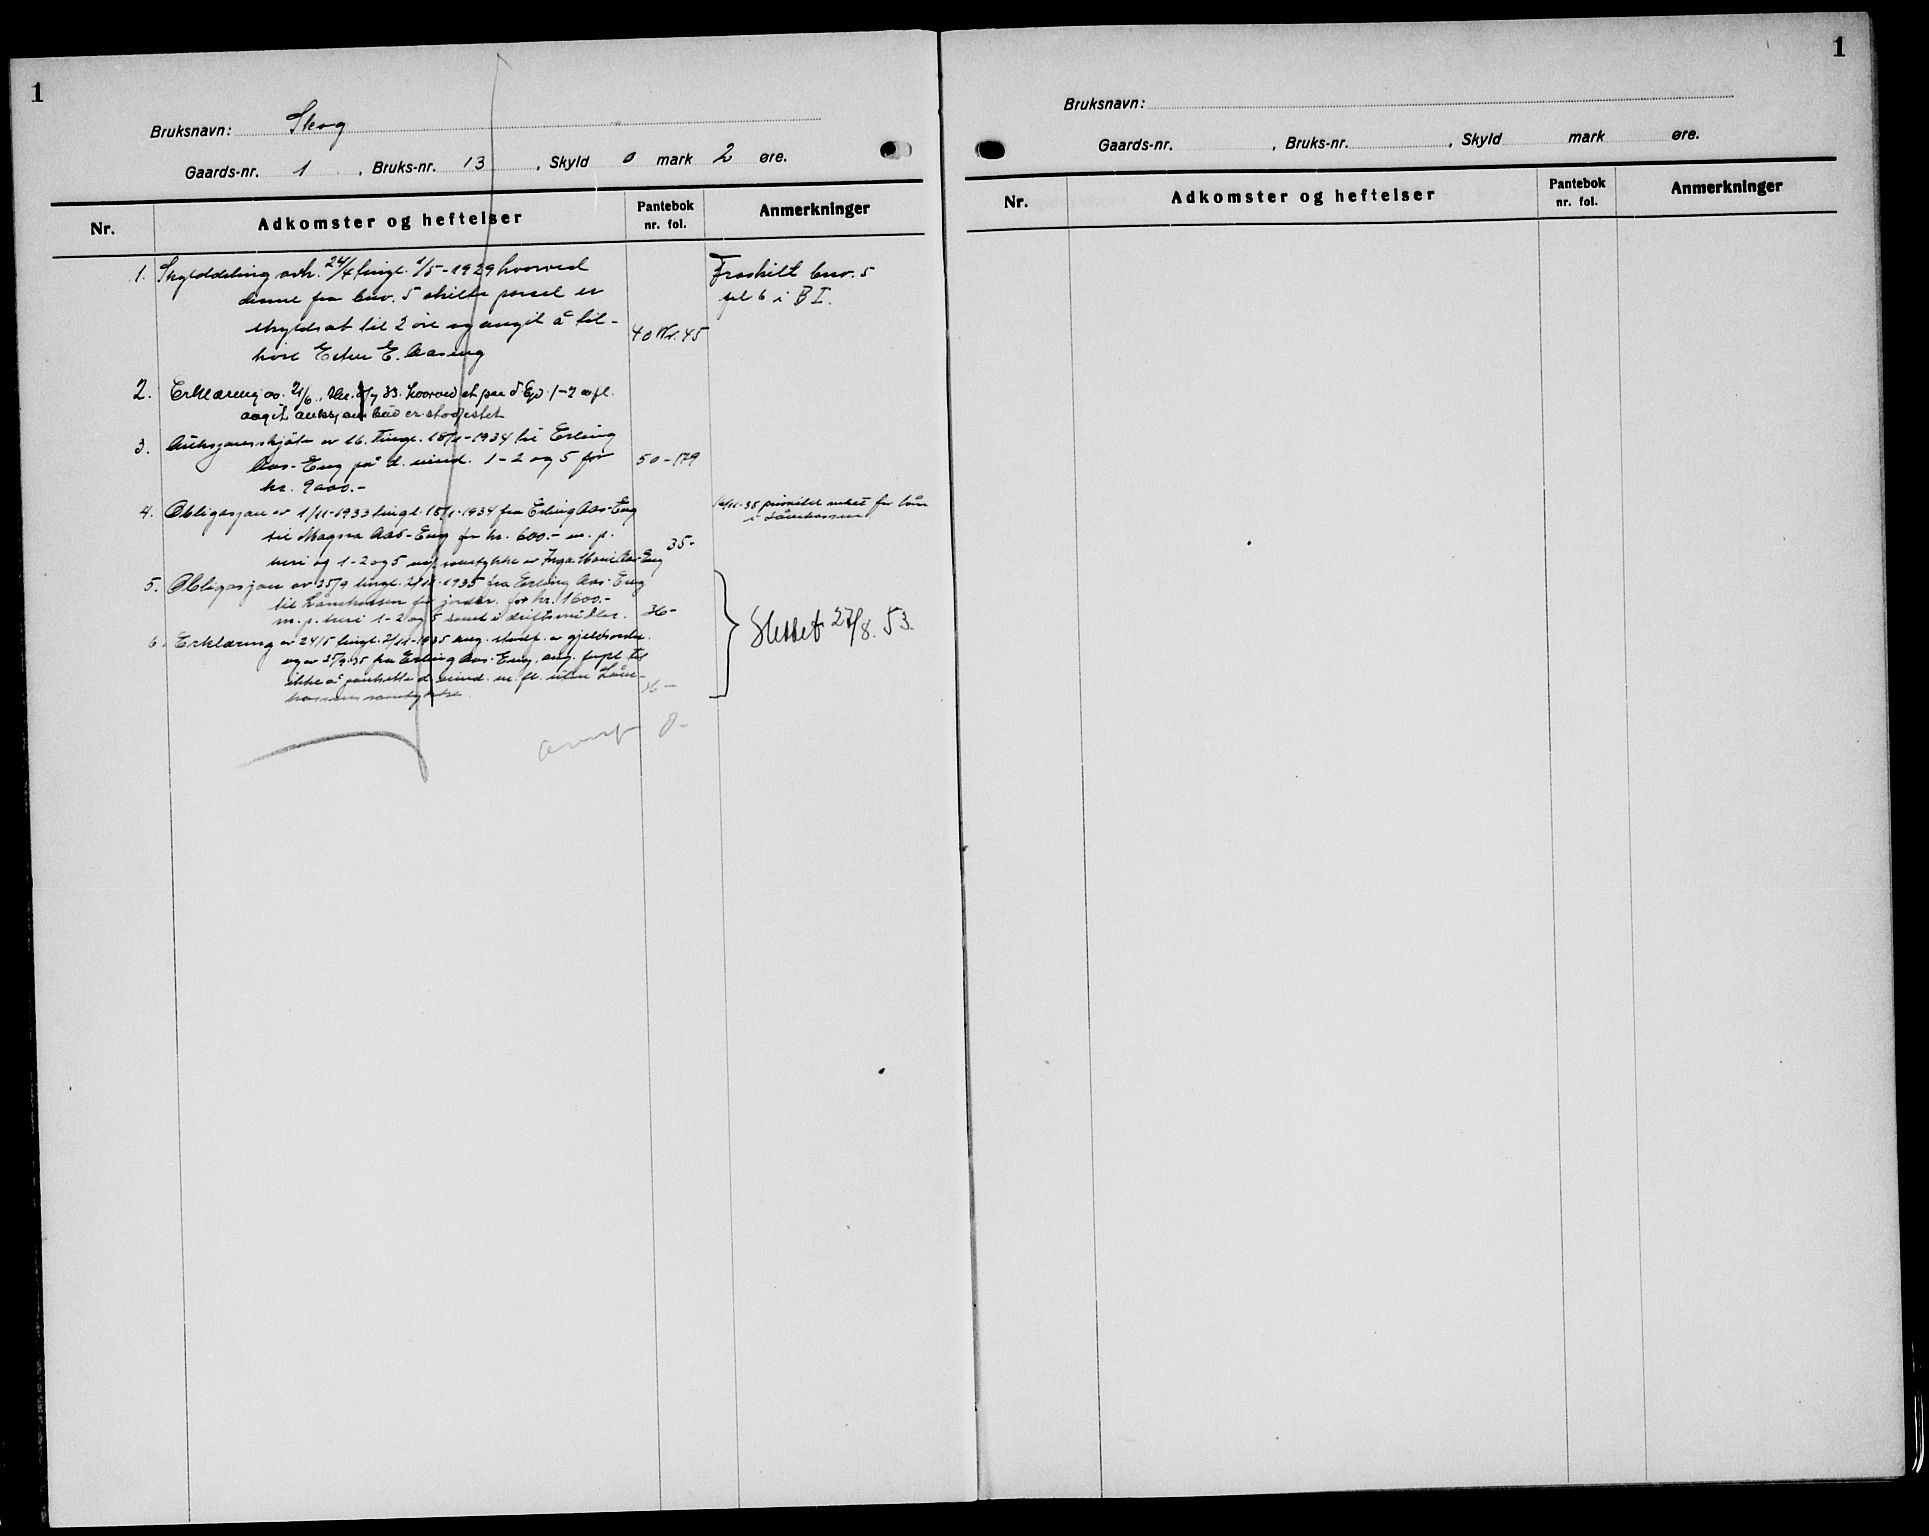 1
Bruksnavn: Skog
Gaards-nr. 1 , Bruks-nr. 13 , Skyld 0 mark 2 øre.
Nr. Adkomster og heftelser Pantebok nr. fol. Anmerkninger
1. Skylddeling avh. 24/4 tingl. 1/5-1929 hvorved
denne fra bnr. 5 skilte parsel er
skyldsat til 2 øre og angit å til-
høre Ester E. Aaseng 40 Nr. 45
Fraskilt bnr. 5
fol 6 i B I.
2. Erklæring av 21/6 33. hvorved et paa d. Ejd. 1-2 m fl.
avgit auksjons bud er stadfestet
3. Auksjonsskjøte av 16. tingl. 18/1-1934 til Erling
Aas-Eng på d. eiend. 1-2 og 5 for 50-179
kr. 9000.-
4. Obligasjon av 1/11-1933 tingl. 18/1-1934 fra Erling Aas-Eng
til Magna Aas-Eng for kr. 600.- m. p.
heri og 1-2 og 5 samtykke av Inga Marie Aas-Eng 35-
prioritet veket for lån
i Lånekassen
5. Obligasjon av 25/9 tingl. 2/11-1935 fra Erling Aas-Eng
til Lånekassen for jordbr. for kr. 1600.-
m. p. heri 1-2 og 5 samt i driftsmidler. 36-
6. Erklæring av 24/5 tingl. 2/11-1935 ang. stadf. av gjeldsordn.
og av 25/9-35 fra Erling Aas-Eng. ang. forpl. til
ikke å pantsette d. eiend. m. fl. uten Låne-
kassens samtykke. 36-
Slettet 27/8. 53.
1
Bruksnavn:
Gaards-nr. , Bruks-nr. , Skyld mark øre.
Nr. Adkomster og heftelser Pantebok nr. fol. Anmerkninger